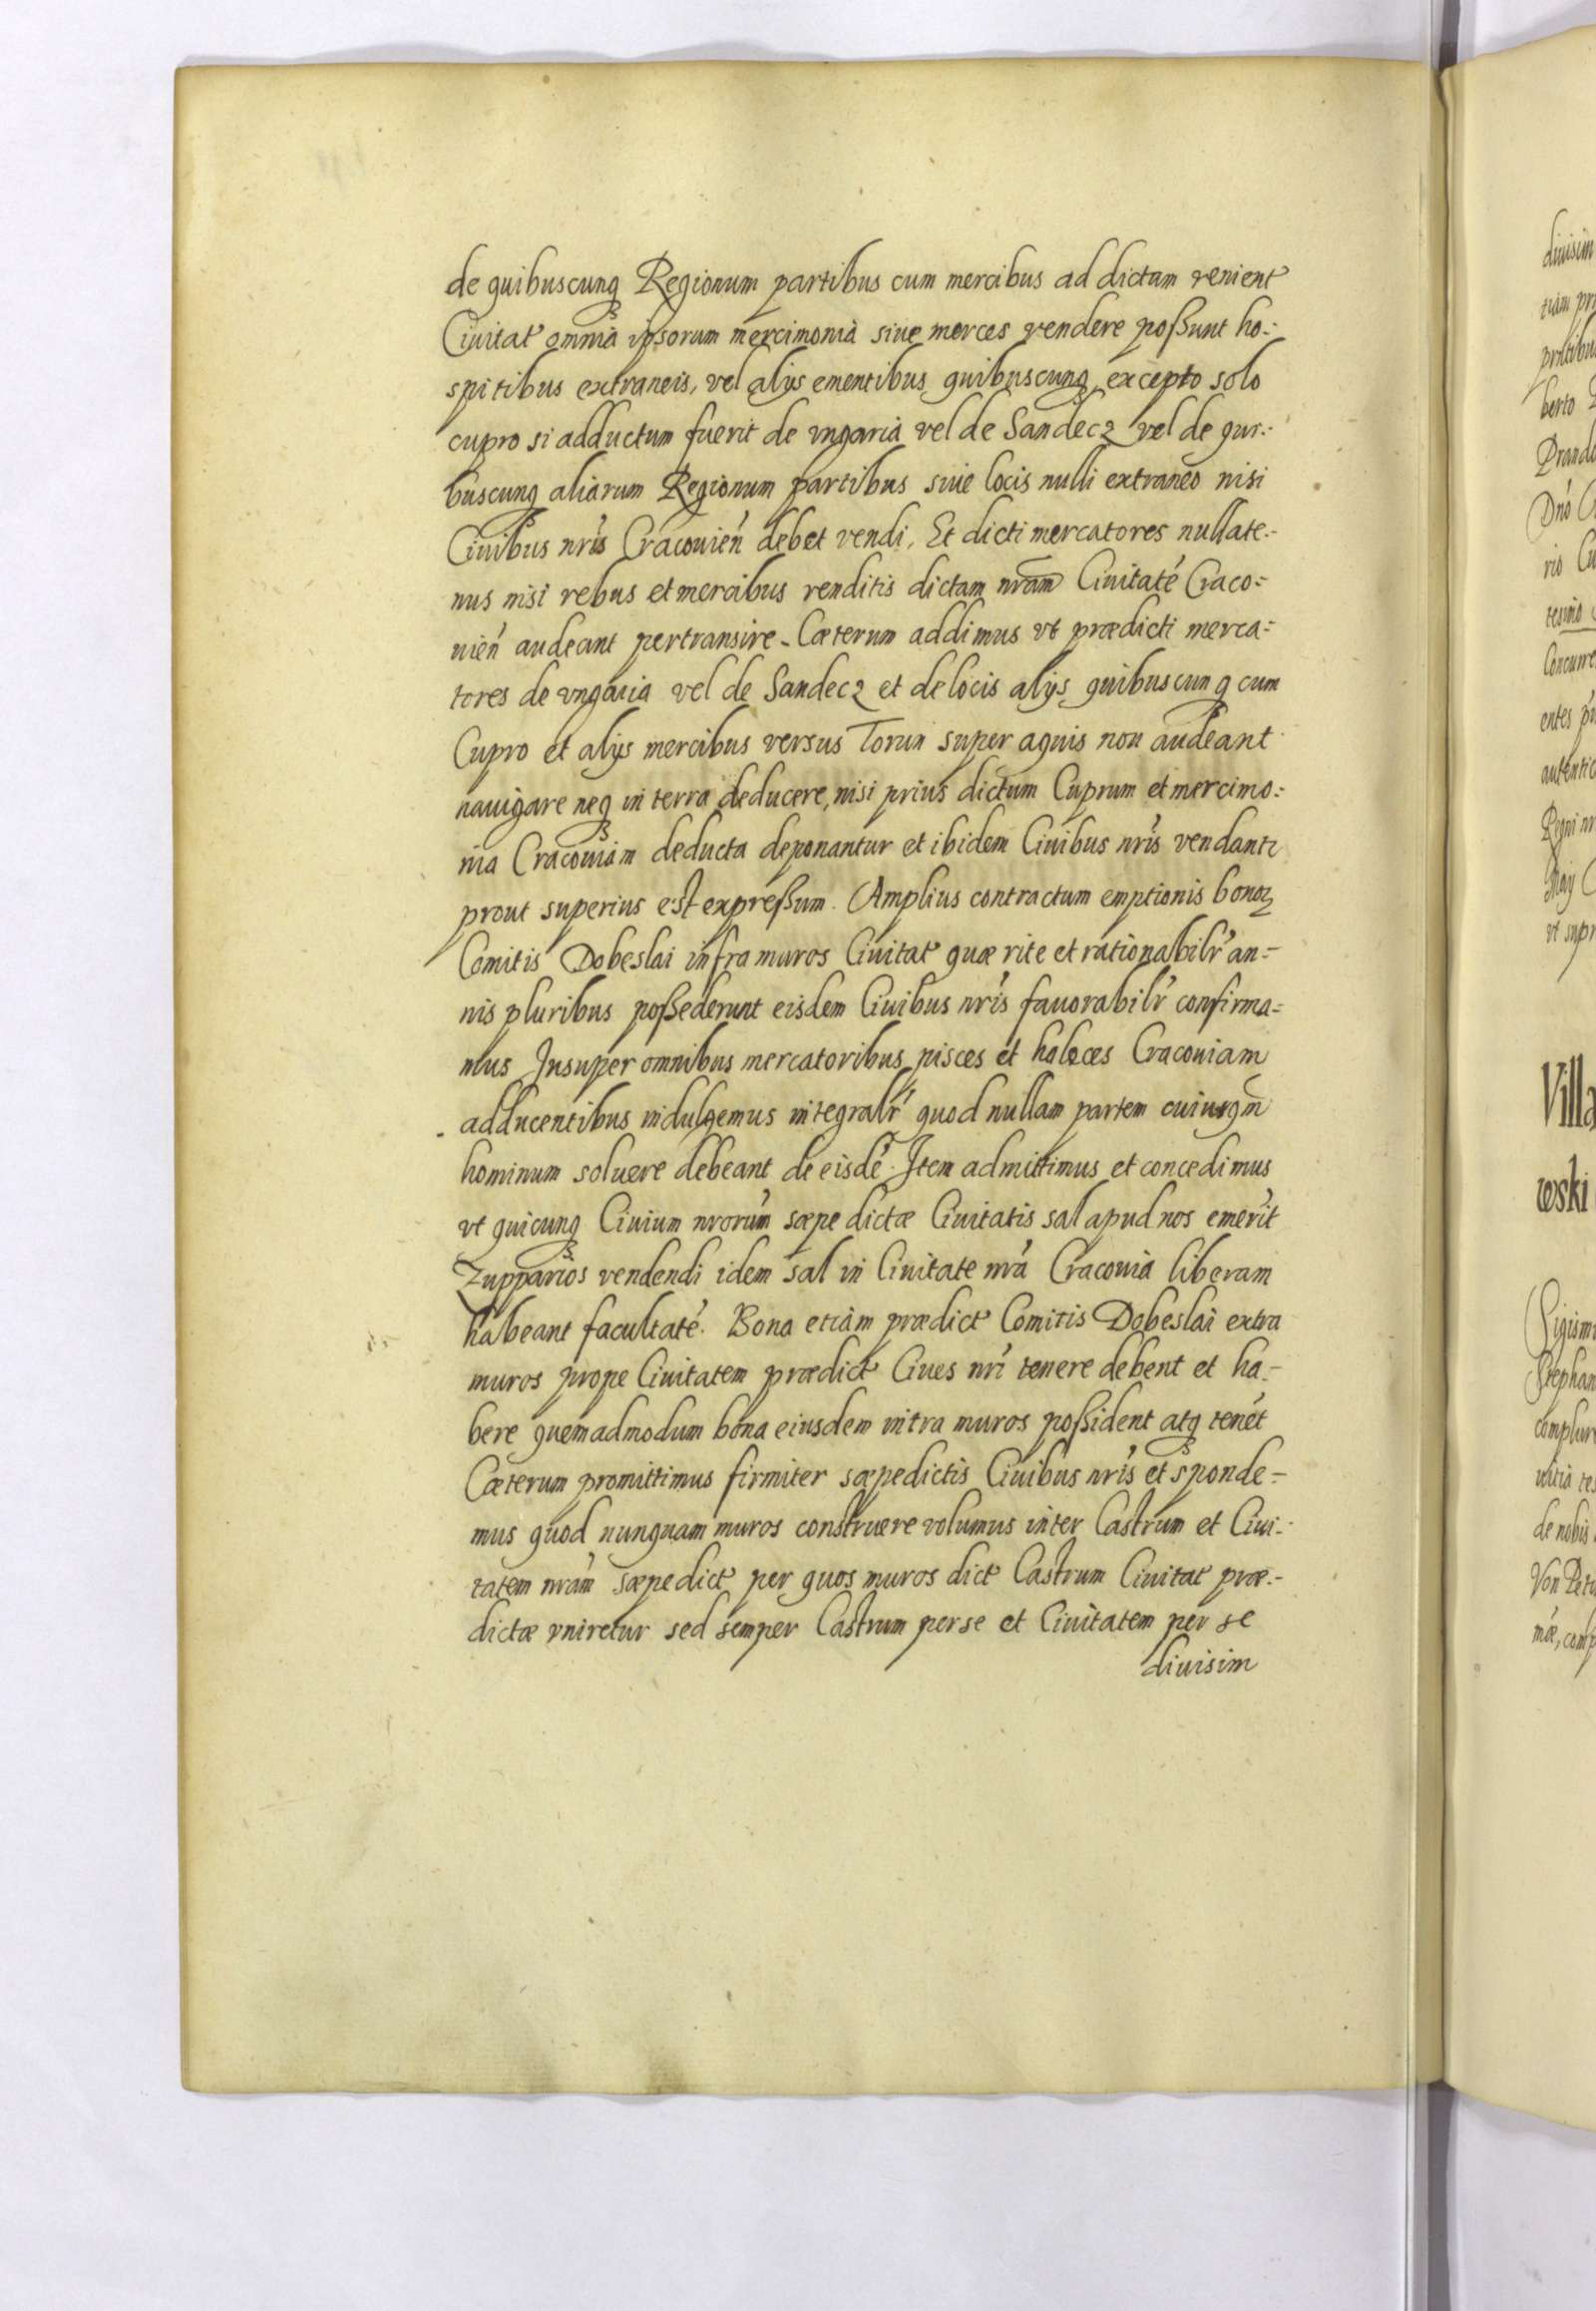 de quibuscunq Regionum partibus cum mercibus ad dictam venient
Ciuitat omnia ipsorum mercimonia siue merces vendere poßunt ho-
spitibus extraneis, vel alijs ementibus quibuscunq, excepto solo
cupro si adductum fuerit de vngaria vel de Sandecz vel de qui-
buscunq aliarum Regionum partibus siue locis nulli extraneo nisi
Ciuibus nris Cracouień debet vendi, Et dicti mercatores nullate-
nus nisi rebus et mercibus venditis dictam nram Ciuitaté Craco-
uień audeant pertransire. Cæterum addimus vt prædicti merca-
tores de vngaria vel de Sandecz et de locis alijs quibuscunq cum
Cupro et alijs mercibus versus Torun super aquis non audeant
nauigare neq in terra deducere, nisi prius dictum Cuprum et mercimo-
nia Cracouiam deducta deponantur et ibidem Ciuibus nris vendantr
prout superius est expreßum. Amplius contractum emptionis bonoꝝ
Comitis Dobeslai infra muros Ciuitat quæ rite et rationabilr an-
nis pluribus poßederunt eisdem Ciuibus nris fauorabilr confirma-
mus Insuper omnibus mercatoribus pisces et haleces Cracouiam
adducentibus indulgemus integralr quod nullam partem cuiusqm
hominum soluere debeant de eisdé. Item admittimus et concedimus
vt quicunq Ciuium nrorum sæpe dictæ Ciuitatis sal apud nos emerit
Zupparios vendendi idem sal in Ciuitate nra Cracouia liberam
habeant facultaté. Bona etiam prædict Comitis Dobeslai extra
muros prope Ciuitatem prædict Ciues nri tenere debent et ha-
bere quemadmodum bona eiusdem intra muros poßident atq tenét
Cæterum promittimus firmiter sæpedictis Ciuibus nris et sponde-
mus quod nunquam muros construere volumus inter Castrum et Ciui-
tatem nram sæpedict per quos muros dict Castrum Ciuitat præ-
dictæ vniretur sed semper Castrum per se et Ciuitatem per se
diuisim
diuisim
tiam
berto
Dno
rio
Concurre
entes
autentic
Regni
vt supr
Villa
wski
Sigism
Stephan
complur
de nobis
Von Petr